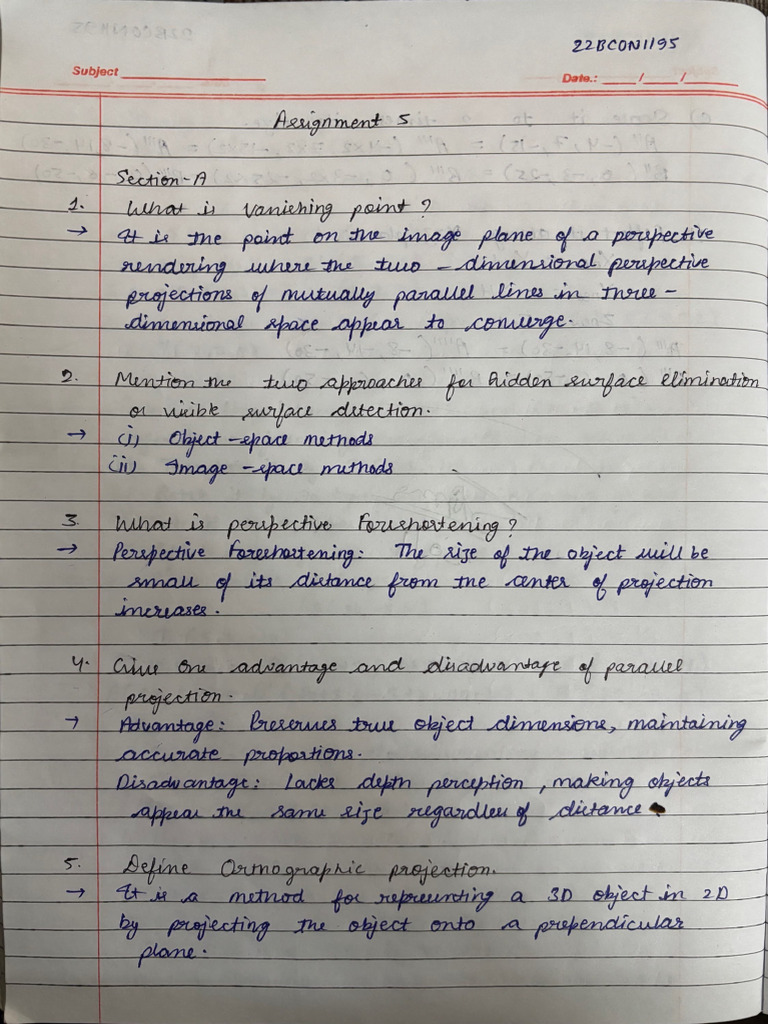 22BCON1195
Subject
Date.: / /
Assignment 5
Section-A
1. What is vanishing point?
→ It is the point on the image plane of a perspective
rendering where the two-dimensional perspective
projections of mutually parallel lines in three-
dimensional space appear to converge.
2. Mention the two approaches for hidden surface elimination
or visible surface detection.
→ (i) Object-space methods
(ii) Image-space methods
3. What is perspective Foreshortening?
→ Perspective Foreshortening: The size of the object will be
small of its distance from the center of projection
increases.
4. Give One advantage and disadvantage of parallel
projection.
→ Advantage: Preserves true object dimensions, maintaining
accurate proportions.
Disadvantage: Lacks depth perception, making objects
appear the same size regardless of distance
5. Define Orthographic projection.
→ It is a method for representing a 3D object in 2D
by projecting the object onto a prependicular
plane.